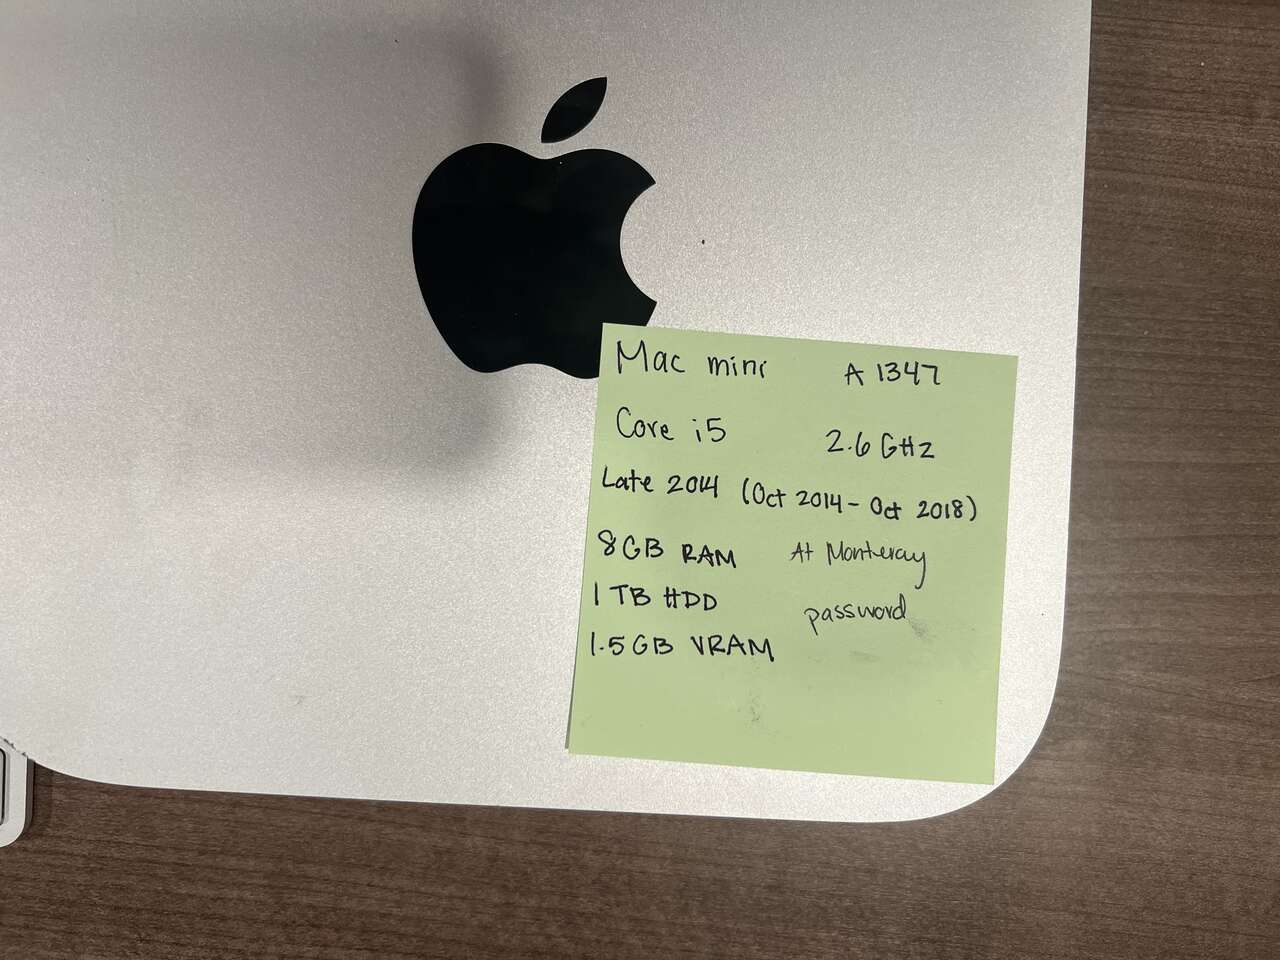 Mac mini A1347
Core i5 2.6 GHz
Late 2014 (Oct 2014 - Oct 2018)
8GB RAM At Monteray
1 TB HDD password
1.5GB VRAM